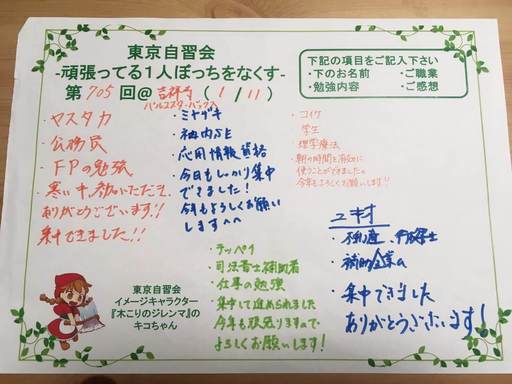 東京自習会
-頑張ってる1人ぼっちをなくす-
第705回@吉祥寺(1/11)
パルコスターバックス
下記の項目をご記入下さい
・下のお名前 ・ご職業
・勉強内容 ・ご感想
・ヤスタカ
・公務員
・FPの勉強
・寒い中、頂いただき
ありがとうございます!!
集中できました!!
・ミヤザキ
・社内SE
・応用情報資格
・今日もしっかり集中
できました!
今年もよろしくお願い
します^^
・コイケ
・学生
・理学療法
・朝の時間を有効に
使うことができました。
今年もよろしくお願いします!!
・不動産、
・集中できました
ありがとうございます!
・テッペイ
・司法書士補助者
・仕事の勉強
・集中して進められました
今年も頑張りますので
よろしくお願いします!
東京自習会
イメージキャラクター
『木こりのジレンマ』の
キコちゃん